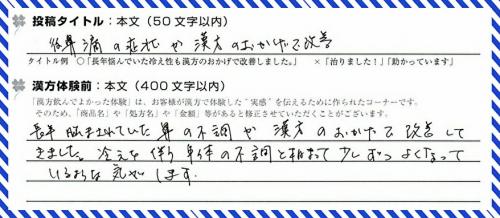 投稿タイトル：本文（50文字以内）
後鼻漏の症状が漢方のおかげで改善
タイトル例 ○「長年悩んでいた冷え性も漢方のおかげで改善しました。」 ×「治りました！」「助かっています」
漢方体験前：本文（400文字以内）
「漢方飲んでよかった体験」は、お客様が漢方で体験した“実感”を伝えるために作られたコーナーです。
そのため、「商品名」や「処方名」や「金額」等があると修正させていただくことがございます。
長年 悩まされていた鼻の不調が漢方のおかげで改善して
きました。冷えを伴う身体の不調と相まって少しずつよくなって
いるような気がします。